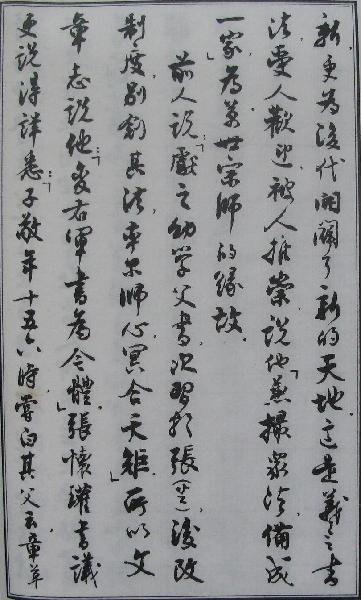 新，更為後代開闢了新的天地。這是羲之書
法受人歡迎，被人推崇，說他「兼撮眾法，備成
一家」，為萬世宗師的緣故。
前人說：「獻之幼學父書，次習於張(芝)，後改
制度，別創其法，率爾師心，冥合天矩。」所以文
章志說他：「變右軍書為今體。」張懷瓘書議
更說得詳悉：「子敬年十五六時嘗白其父云：章草